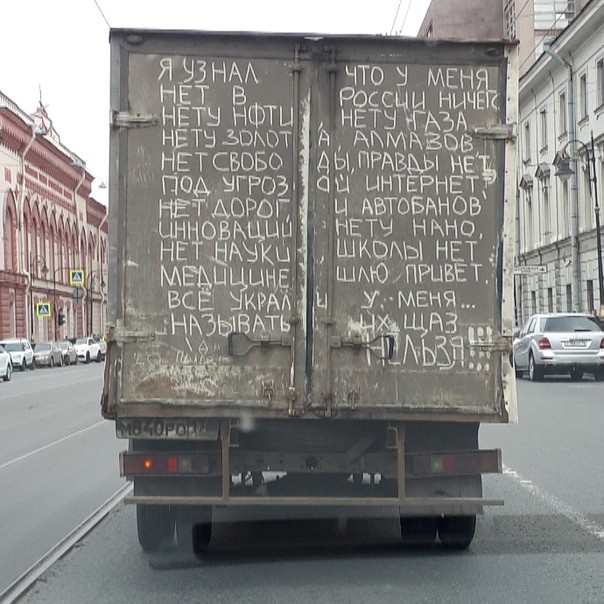 Я УЗНАЛ ЧТО У МЕНЯ
НЕТ В РОССИИ НИЧЕГО
НЕТУ НФТИ НЕТУ ГАЗА
НЕТУ ЗОЛОТА АЛМАЗОВ
НЕТ СВОБОДЫ, ПРАВДЫ НЕТ.
ПОД УГРОЗОЙ ИНТЕРНЕТ
НЕТ ДОРОГ И АВТОБАНОВ
ИННОВАЦИЙ НЕТУ НАНО,
НЕТ НАУКИ, ШКОЛЫ НЕТ
МЕДИЦИНЕ, ШЛЮ ПРИВЕТ.
ВСЁ УКРАЛИ У МЕНЯ...
НАЗЫВАТЬ ИХ ЩАЗ
НЕЛЬЗЯ!!!
М840РО